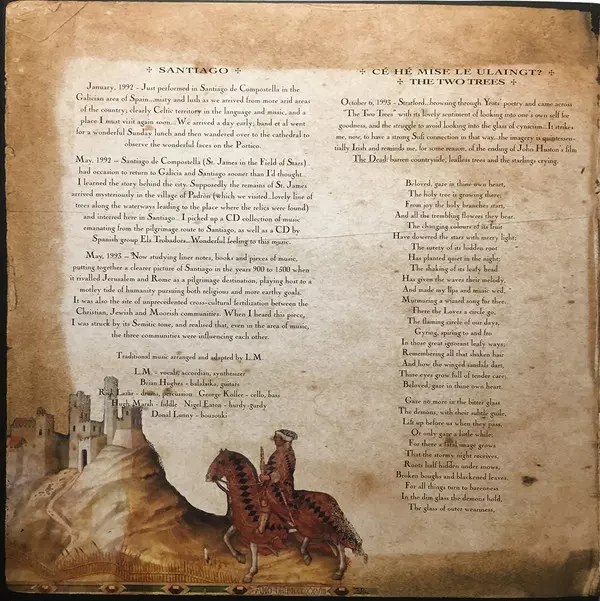 SANTIAGO
January, 1992 - Just performed in Santiago de Compostella in the
Galician area of Spain...misty and lush as we arrived from more arid areas
of the country; clearly Celtic territory in the language and music, and a
place I must visit again soon...We arrived a day early; band et al went
for a wonderful Sunday lunch and then wandered over to the cathedral to
observe the wonderful faces on the Portico.
May, 1992 - Santiago de Compostella (St. James in the Field of Stars)
had occasion to return to Galicia and Santiago sooner than I'd thought..
I learned the story behind the city. Supposedly the remains of St. James
arrived mysteriously in the village of Padrön (which we visited..lovely line of
trees along the waterways leading to the place where the relics were found)
and interred here in Santiago... I picked up a CD collection of music
emanating from the pilgrimage route to Santiago, as well as a CD by
Spanish group Els Trobadors...Wonderful feeling to this music.
May, 1993 - Now studying liner notes, books and pieces of music,
putting together a clearer picture of Santiago in the years 900 to 1500 when
it rivalled Jerusalem and Rome as a pilgrimage destination, playing host to a
motley tide of humanity pursuing both religious and more earthy goals.
It was also the site of unprecedented cross-cultural fertilization between the
Christian, Jewish and Moorish communities. When I heard this piece,
I was struck by its Semitic tone, and realised that, even in the area of music,
the three communities were influencing each other.
Traditional music arranged and adapted by L.M.
L.M. - vocals, accordian, synthesizer
Brian Hughes - balalaika, guitars
Rick Lazar - drums, percussion George Koller - cello, bass
Hugh Marsh - fiddle Nigel Eaton - hurdy-gurdy
Donal Lunny - bouzouki
CÉ HÉ MISE LE ULAINGT?
THE TWO TREES
October 6, 1993 - Stratford...browsing through Yeats' poetry and came across
"The Two Trees" with its lovely sentiment of looking into one's own self for
goodness, and the struggle to avoid looking into the glass of cynicism...It strikes
me, now, to have a strong Sufi connection in that way, the imagery is quintessen-
tially Irish and reminds me, for some reason, of the ending of John Huston's film
The Dead: barren countryside, leafless trees and the starlings crying.
Beloved, gaze in thine own heart,
The holy tree is growing there;
From joy the holy branches start,
And all the trembling flowers they bear.
The changing colours of its fruit
Have dowered the stars with merry light;
The surety of its hidden root
Has planted quiet in the night;
The shaking of its leafy head
Has given the waves their melody,
And made my lips and music wed,
Murmuring a wizard song for thee.
There the Loves a circle go,
The flaming circle of our days,
Gyring, spiring to and fro
In those great ignorant leafy ways;
Remembering all that shaken hair
And how the winged sandals dart,
Thine eyes grow full of tender care;
Beloved, gaze in thine own heart.
Gaze no more in the bitter glass
The demons, with their subtle guile,
Lift up before us when they pass,
Or only gaze a little while;
For there a fatal image grows
That the stormy night receives,
Roots half hidden under snows,
Broken boughs and blackened leaves.
For all things turn to barenness
In the dim glass the demons hold,
The glass of outer weariness,